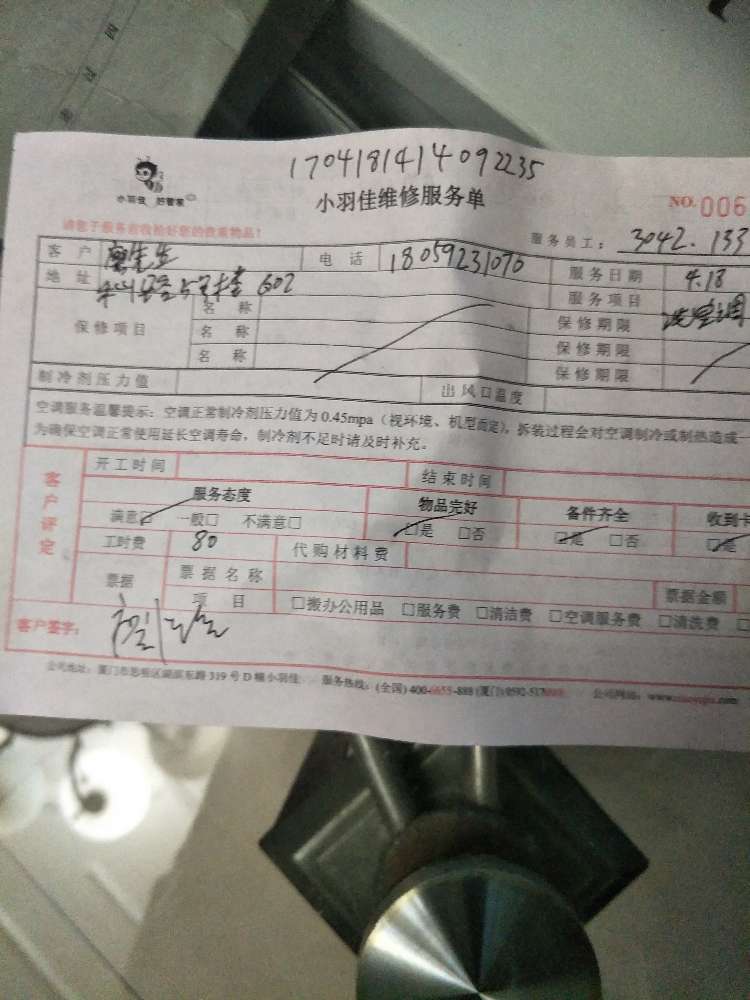 1704181414092235
小羽佳 好管家
小羽佳维修服务单
NO. 006
请您于服务前收拾好您的贵重物品!
服务员工: 3042.133
客户 电话 18059231070 服务日期 4.18
地址 602 服务项目 洗空调
保修项目 名称 保修期限
名称 保修期限
名称 保修期限
制冷剂压力值 出风口温度
空调服务温馨提示:空调正常制冷剂压力值为0.45mpa(视环境、机型而定),拆装过程会对空调制冷或制热造成一
为确保空调正常使用延长空调寿命,制冷剂不足时请及时补充。
客户评定
开工时间 结束时间
服务态度 物品完好 备件齐全 收到卡
满意☑ 一般□ 不满意□ ☑是 □否 ☑是 □否 ☑是
工时费 80 代购材料费
票据 票据名称 票据金额
项目 □搬办公用品 □服务费 □清洁费 □空调服务费 □清洗费 □
客户签字:
公司地址:厦门市思明区湖滨东路319号D幢小羽佳 服务热线:(全国)400-6655-888(厦门)0592-517 公司网站:www.xiaoyujia.com